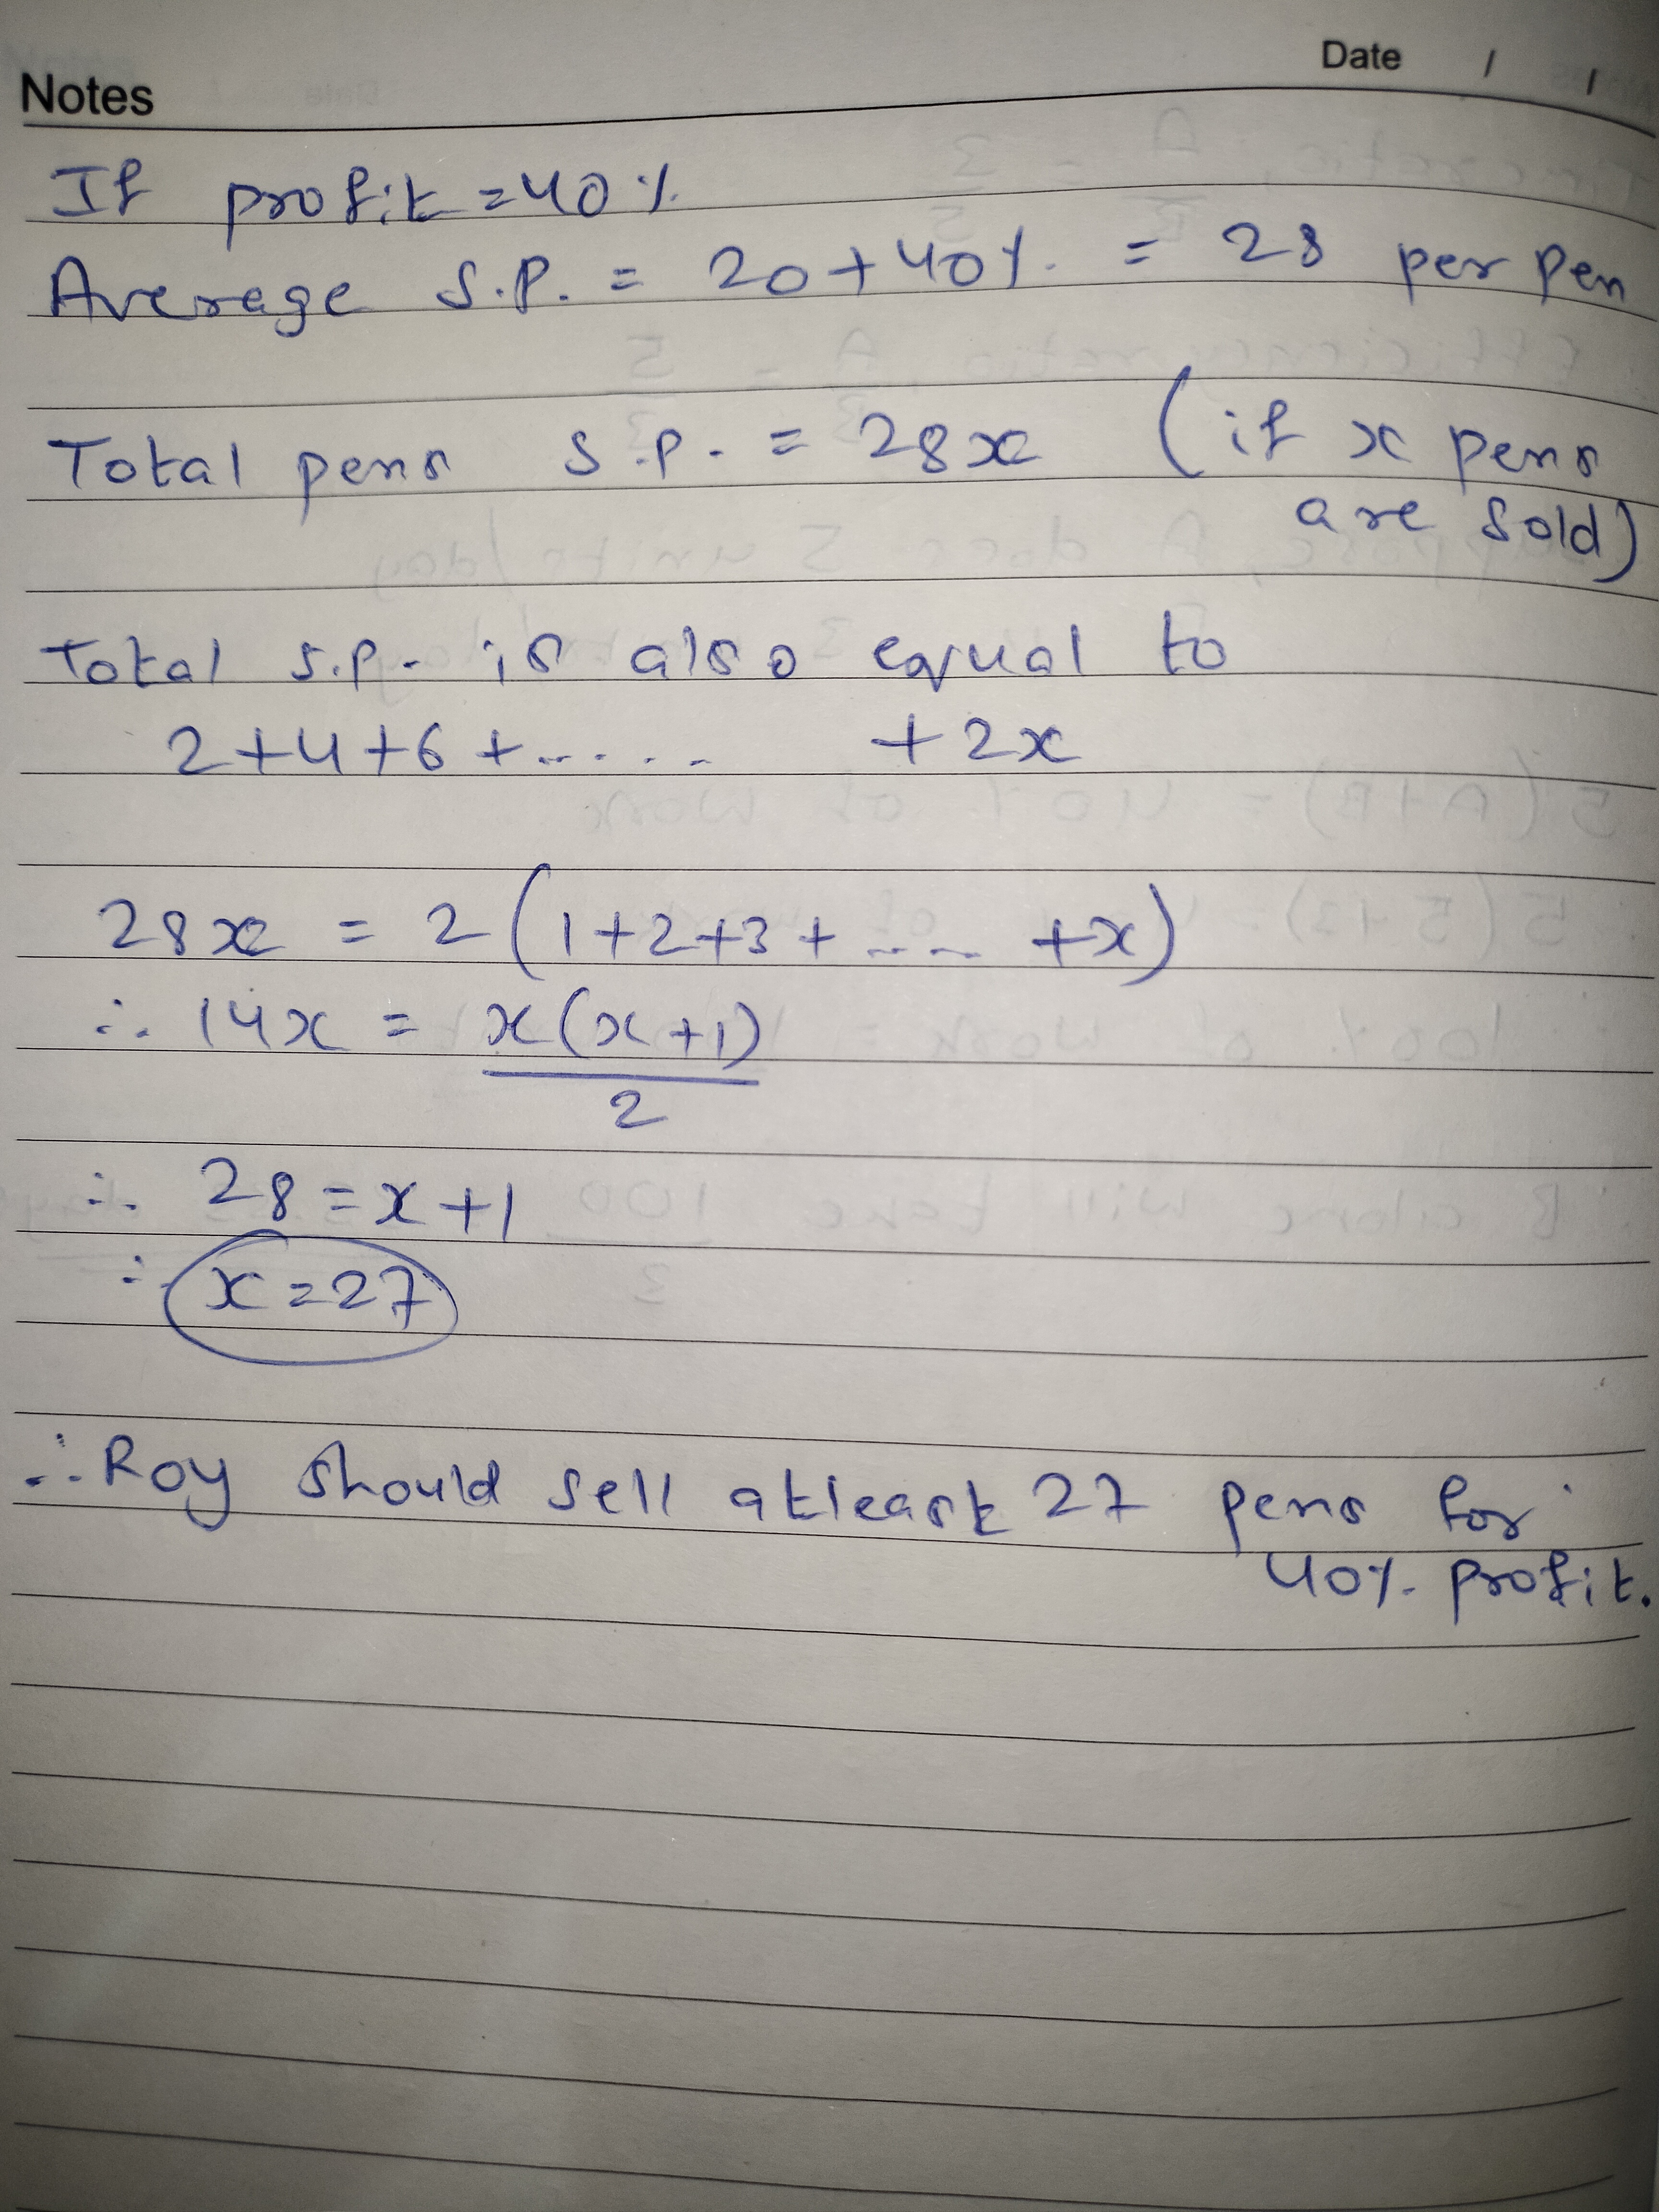 Date / /
Notes
If profit = 40%
Average S.P. = 20 + 40% = 28 per pen
Total pens S.P. = 28x (if x pens
are sold)
Total S.P. is also equal to
2+4+6+..... +2x
28x = 2(1+2+3+..... +x)
∴ 14x = x(x+1)
2
∴ 28 = x+1
∴ x = 27
∴ Roy should sell atleast 27 pens for
40% profit.